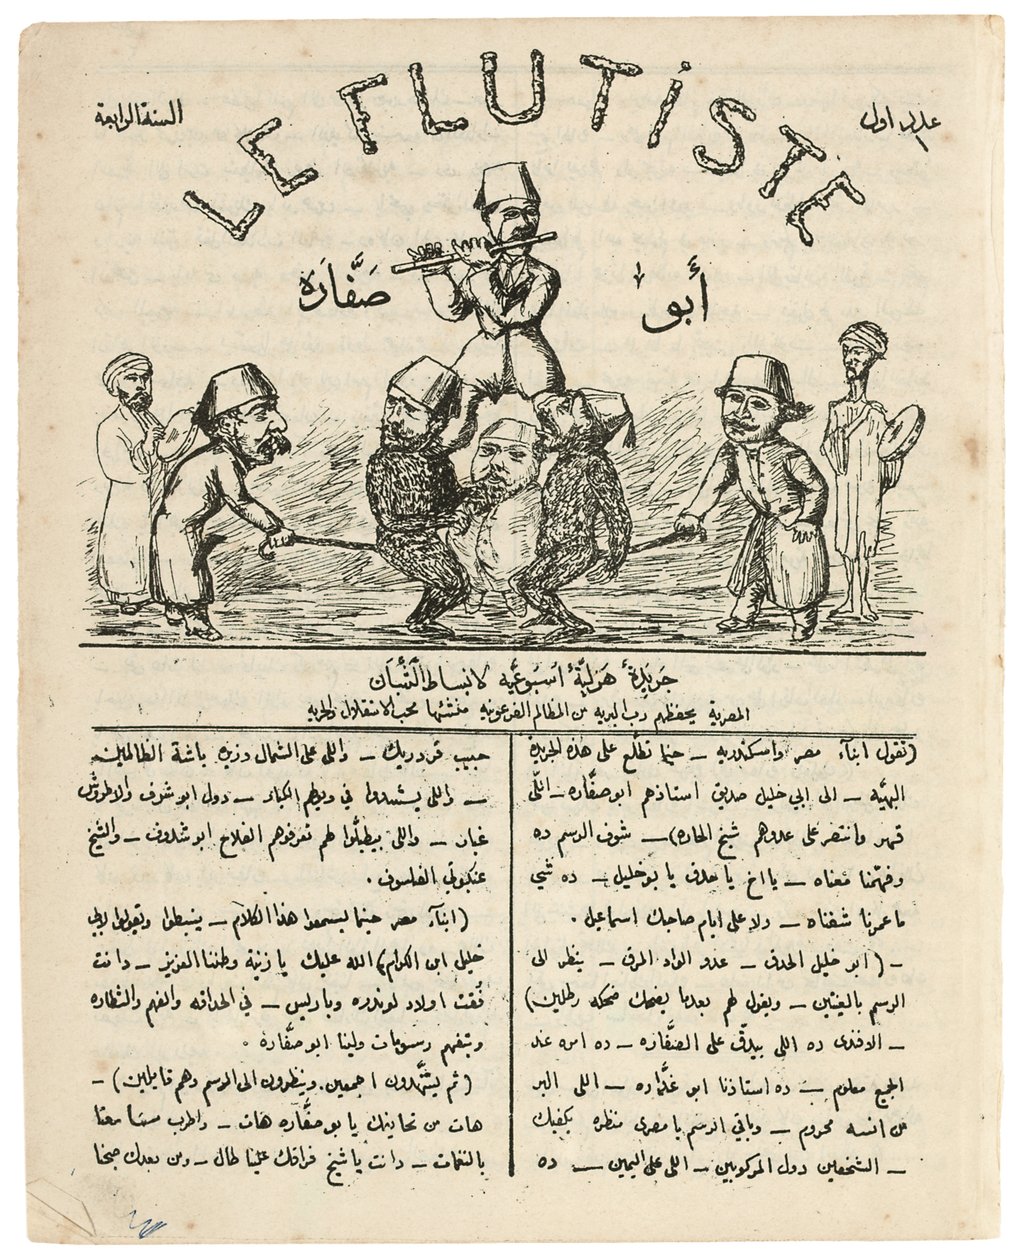 LE FLUTISTE
عدد اول
السنة الرابعة
أبو صَفَّارَة
جريدة هزلية اسبوعية لانبساط الشبان
المصرية يحفظهم رب البريه من المظالم الفرعونيه منشئها محب الاستقلال والحريه
(تقول ابنآء مصر واسكندريه ــ حينما تطلع على هذه الجريدة
البهيّه ــ الى ابي خليل صديق استاذهم ابو صفّاره ــ اللّى
قهر وانتصر على عدوهم شيخ الحاره) ــ شوف الرسم ده
وفهّمنا معناه ــ يا اخ يا حدق يا بو خليل ــ ده شي
ما عمرنا شفناه ــ ولا على ايام صاحبك اسماعيل .
ــ (ابو خليل الحدق ــ عدو الواد المرق ــ ينظر الى
الرسم بالعينين ــ ويقول لهم بعدما يضحك ضحكه رطلين)
ــ الافندى ده اللى بيدقّ على الصفّاره ــ ده امره عند
الجميع معلوم ــ ده استاذنا ابو نضّاره ــ اللى البر
من انسه محروم ــ وباقي الرسم يا مصرى منظره يكفيك
ــ الشخصين دول المركوبين ــ اللى على اليمين ــ ده
حبيب قردوريك ــ واللى على الشمال وزيره باشة الظالمين
ــ واللى يسندوا في ديلهم الكبار ــ دول ابو شرف والاطروش
غبار ــ واللى بيطبلوا لهم تعرفوهم الفلاح ابو شادوف ــ والشيخ
عنكبوتى الفلسوف .
(ابنآء مصر حينما يسمعوا هذا الكلام ــ ينبسطوا ويقولوا لابي
خليل ابن الكرام) الله عليك يا زينة وطننا العزيز ــ دا انت
فُقت اولاد لوندره وباريس ــ في الحداقه والفهم والشطاره
وبتفهم رسومات ولينا ابو صفّاره .
(ثم يشهدون اجمعين وينظرون الى الرسم وهم قايلين) ــ
هات من تحاينك يا بو صفّاره هات ــ واطرب سمعنا
بالنغمات ــ دا انت يا شيخ فراقك علينا طال ــ ومن بعدك صبحنا